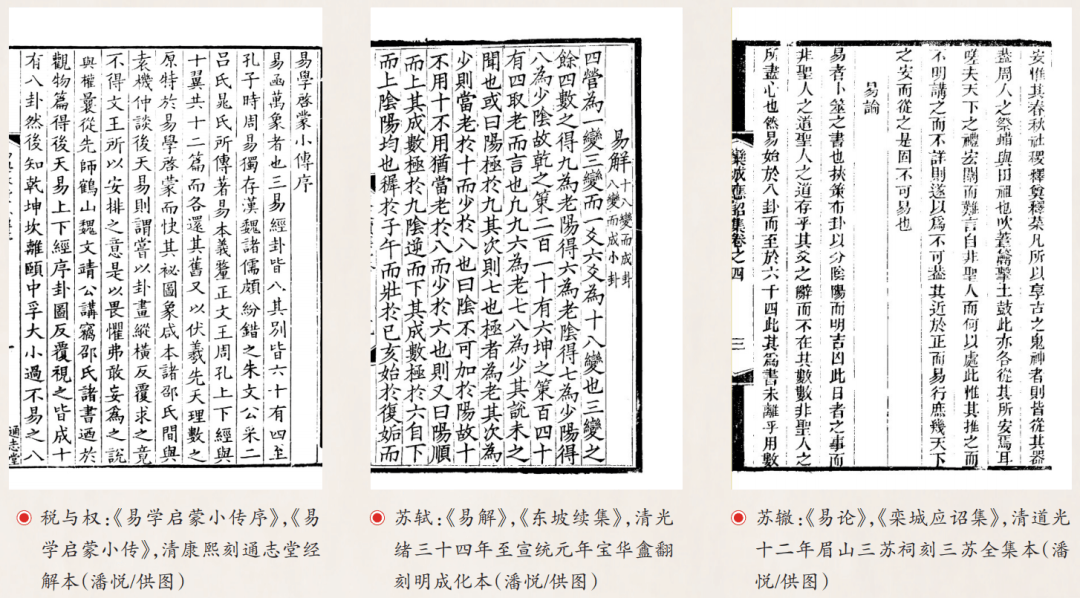 易學啓蒙小傳序
易函萬象者也三易經卦皆八其別皆六十有四至
孔子時周易獨存漢魏諸儒頗紛錯之朱文公采二
呂氏晁氏所傳著易本義釐正文王周孔上下經與
十翼共十二篇而各還其舊又以伏羲先天理數之
原特於易學啓蒙而快其祕圖象咸本諸邵氏間與
袁機仲談後天易則謂嘗以卦畫縱橫反覆求之竟
不得文王所以安排之意是以畏懼弗敢妄為之說
與權曩從先師鶴山魏文靖公講竊邵氏諸書迺於
觀物篇得後天易上下經序卦圖反覆視之皆成十
有八卦然後知乾坤坎離頤中孚大小過不易之八
通志堂
易解
十八變而成卦
八變而成小卦
四營為一變三變而一爻六爻為十八變也三變之
餘四數之得九為老陽得六為老陰得七為少陽得
八為少陰故乾之策二百一十有六坤之策百四十
有四取老而言也凡九六為老七八為少其說未之
聞也或曰陽極於九其次則七也極者為老其次為
少則當老於十而少於八也曰陰不可加於陽故十
不用十不用猶當老於八而少於六也則又曰陽順
而上其成數極於九陰逆而下其成數極於六自下
而上陰陽均也穉於子午而壯於巳亥始於復姤而
安惟其春秋社稷釋奠釋菜凡所以享古之鬼神者則皆從其器
蓋周人之祭蜡與田祖也吹葦籥擊土鼓此亦各從其所安焉耳
嗟夫天下之禮宏闊而難言自非聖人而何以處此惟其推之而
不明講之而不詳則遂以爲不可蓋其近於正而易行庶幾天下
之安而從之是固不可易也
易論
易者卜筮之書也挾策布卦以分陰陽而明吉凶此日者之事而
非聖人之道聖人之道存乎其爻之辭而不在其數數非聖人之
所盡心也然易始於八卦而至於六十四此其爲書未離乎用數
欒城應詔集卷之四
三
税与权:《易学启蒙小传序》,《易
学启蒙小传》,清康熙刻通志堂经
解本(潘悦/供图)
苏轼:《易解》,《东坡续集》,清光
绪三十四年至宣统元年宝华盦翻
刻明成化本(潘悦/供图)
苏辙:《易论》,《栾城应诏集》,清道光
十二年眉山三苏祠刻三苏全集本(潘
悦/供图)